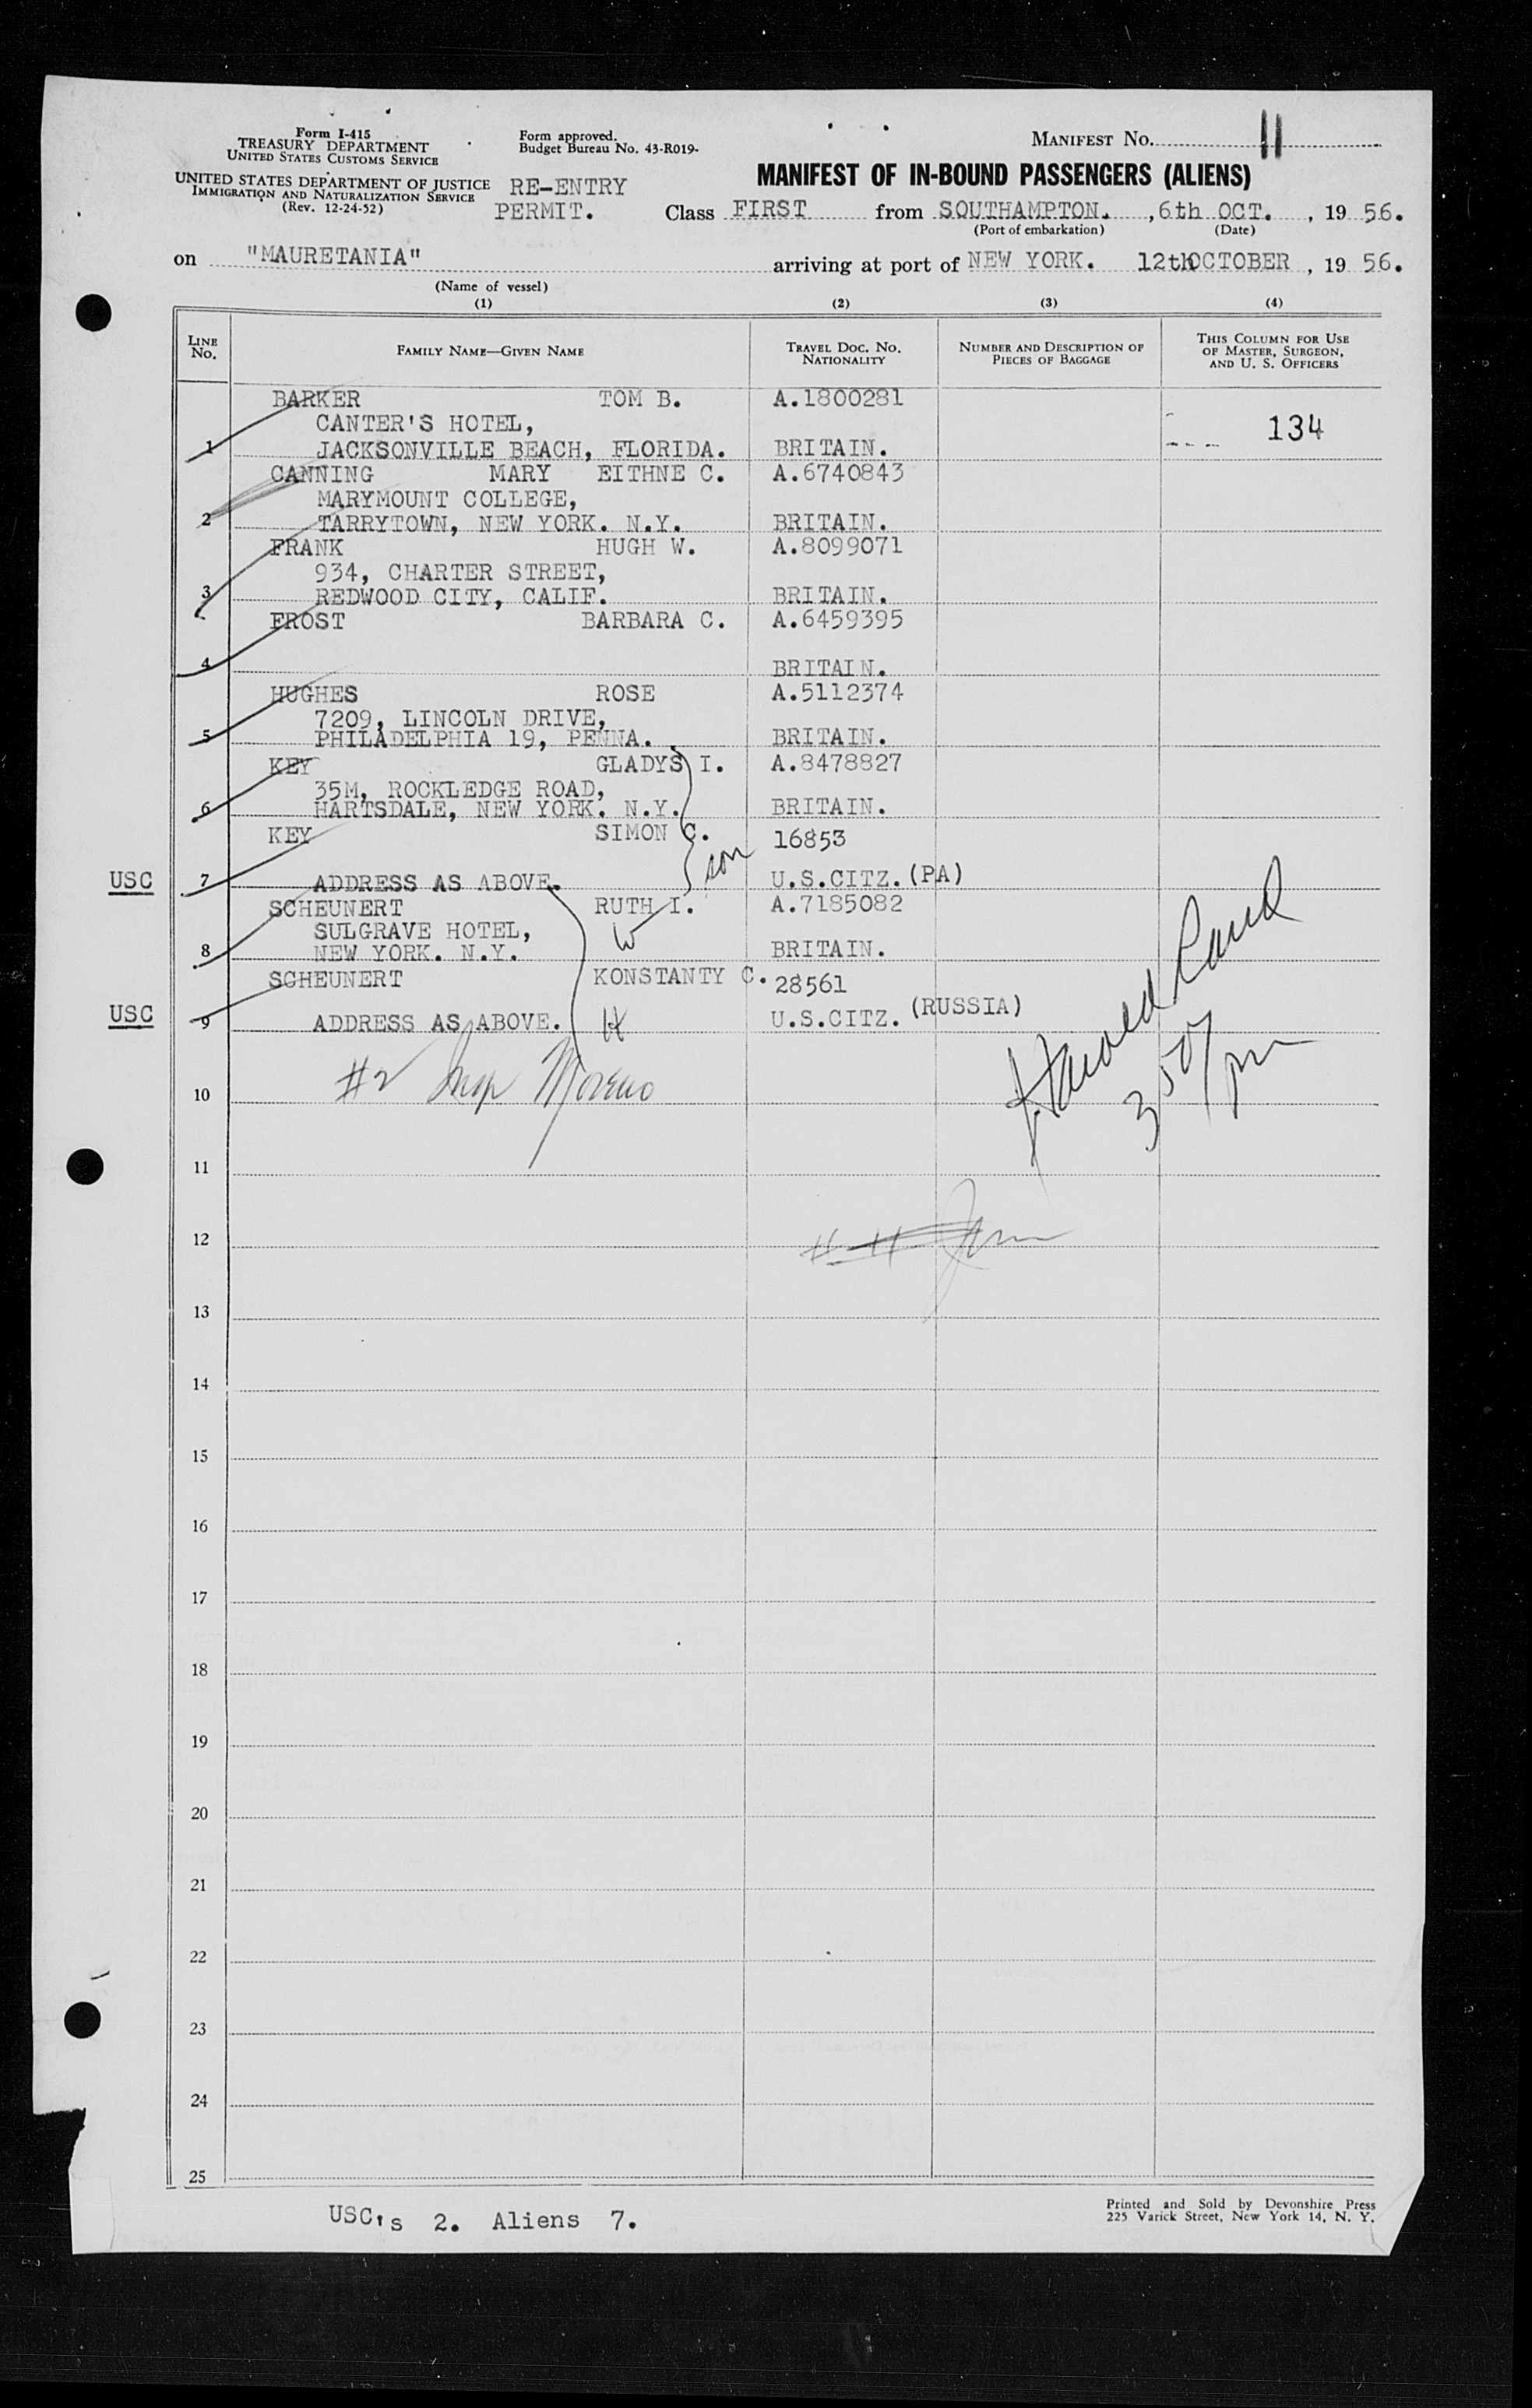 Form I-415
TREASURY DEPARTMENT
UNITED STATES CUSTOMS SERVICE
UNITED STATES DEPARTMENT OF JUSTICE
IMMIGRATION AND NATURALIZATION SERVICE
(Rev. 12-24-52)
Form approved.
Budget Bureau No. 43-R019-
RE-ENTRY
PERMIT.
MANIFEST No. 11
MANIFEST OF IN-BOUND PASSENGERS (ALIENS)
Class FIRST from SOUTHAMPTON. , 6th OCT. , 19 56.
(Port of embarkation) (Date)
on "MAURETANIA" arriving at port of NEW YORK. 12th OCTOBER , 19 56.
(Name of vessel)
(1) (2) (3) (4)
LINE No. FAMILY NAME—GIVEN NAME TRAVEL DOC. NO. NATIONALITY NUMBER AND DESCRIPTION OF PIECES OF BAGGAGE THIS COLUMN FOR USE OF MASTER, SURGEON, AND U. S. OFFICERS
BARKER TOM B. A.1800281
CANTER'S HOTEL, 134
1 JACKSONVILLE BEACH, FLORIDA. BRITAIN.
CANNING MARY EITHNE C. A.6740843
MARYMOUNT COLLEGE,
2 TARRYTOWN, NEW YORK. N.Y. BRITAIN.
FRANK HUGH W. A.8099071
934, CHARTER STREET,
3 REDWOOD CITY, CALIF. BRITAIN.
FROST BARBARA C. A.6459395
4 BRITAIN.
HUGHES ROSE A.5112374
7209, LINCOLN DRIVE,
5 PHILADELPHIA 19, PENNA. BRITAIN.
KEY GLADYS I. A.8478827
35M, ROCKLEDGE ROAD,
6 HARTSDALE, NEW YORK. N.Y. BRITAIN.
KEY SIMON C. 16853
son
USC 7 ADDRESS AS ABOVE. U.S.CITZ. (PA)
SCHEUNERT RUTH I. A.7185082
SULGRAVE HOTEL, W
8 NEW YORK. N.Y. BRITAIN.
SCHEUNERT KONSTANTY C. 28561
USC 9 ADDRESS AS ABOVE. H U.S.CITZ. (RUSSIA)
10 #2 Insp Moreno
11
12
13
14
15
16
17
18
19
20
21
22
23
24
25
USC's 2. Aliens 7.
Printed and Sold by Devonshire Press
225 Varick Street, New York 14, N. Y.